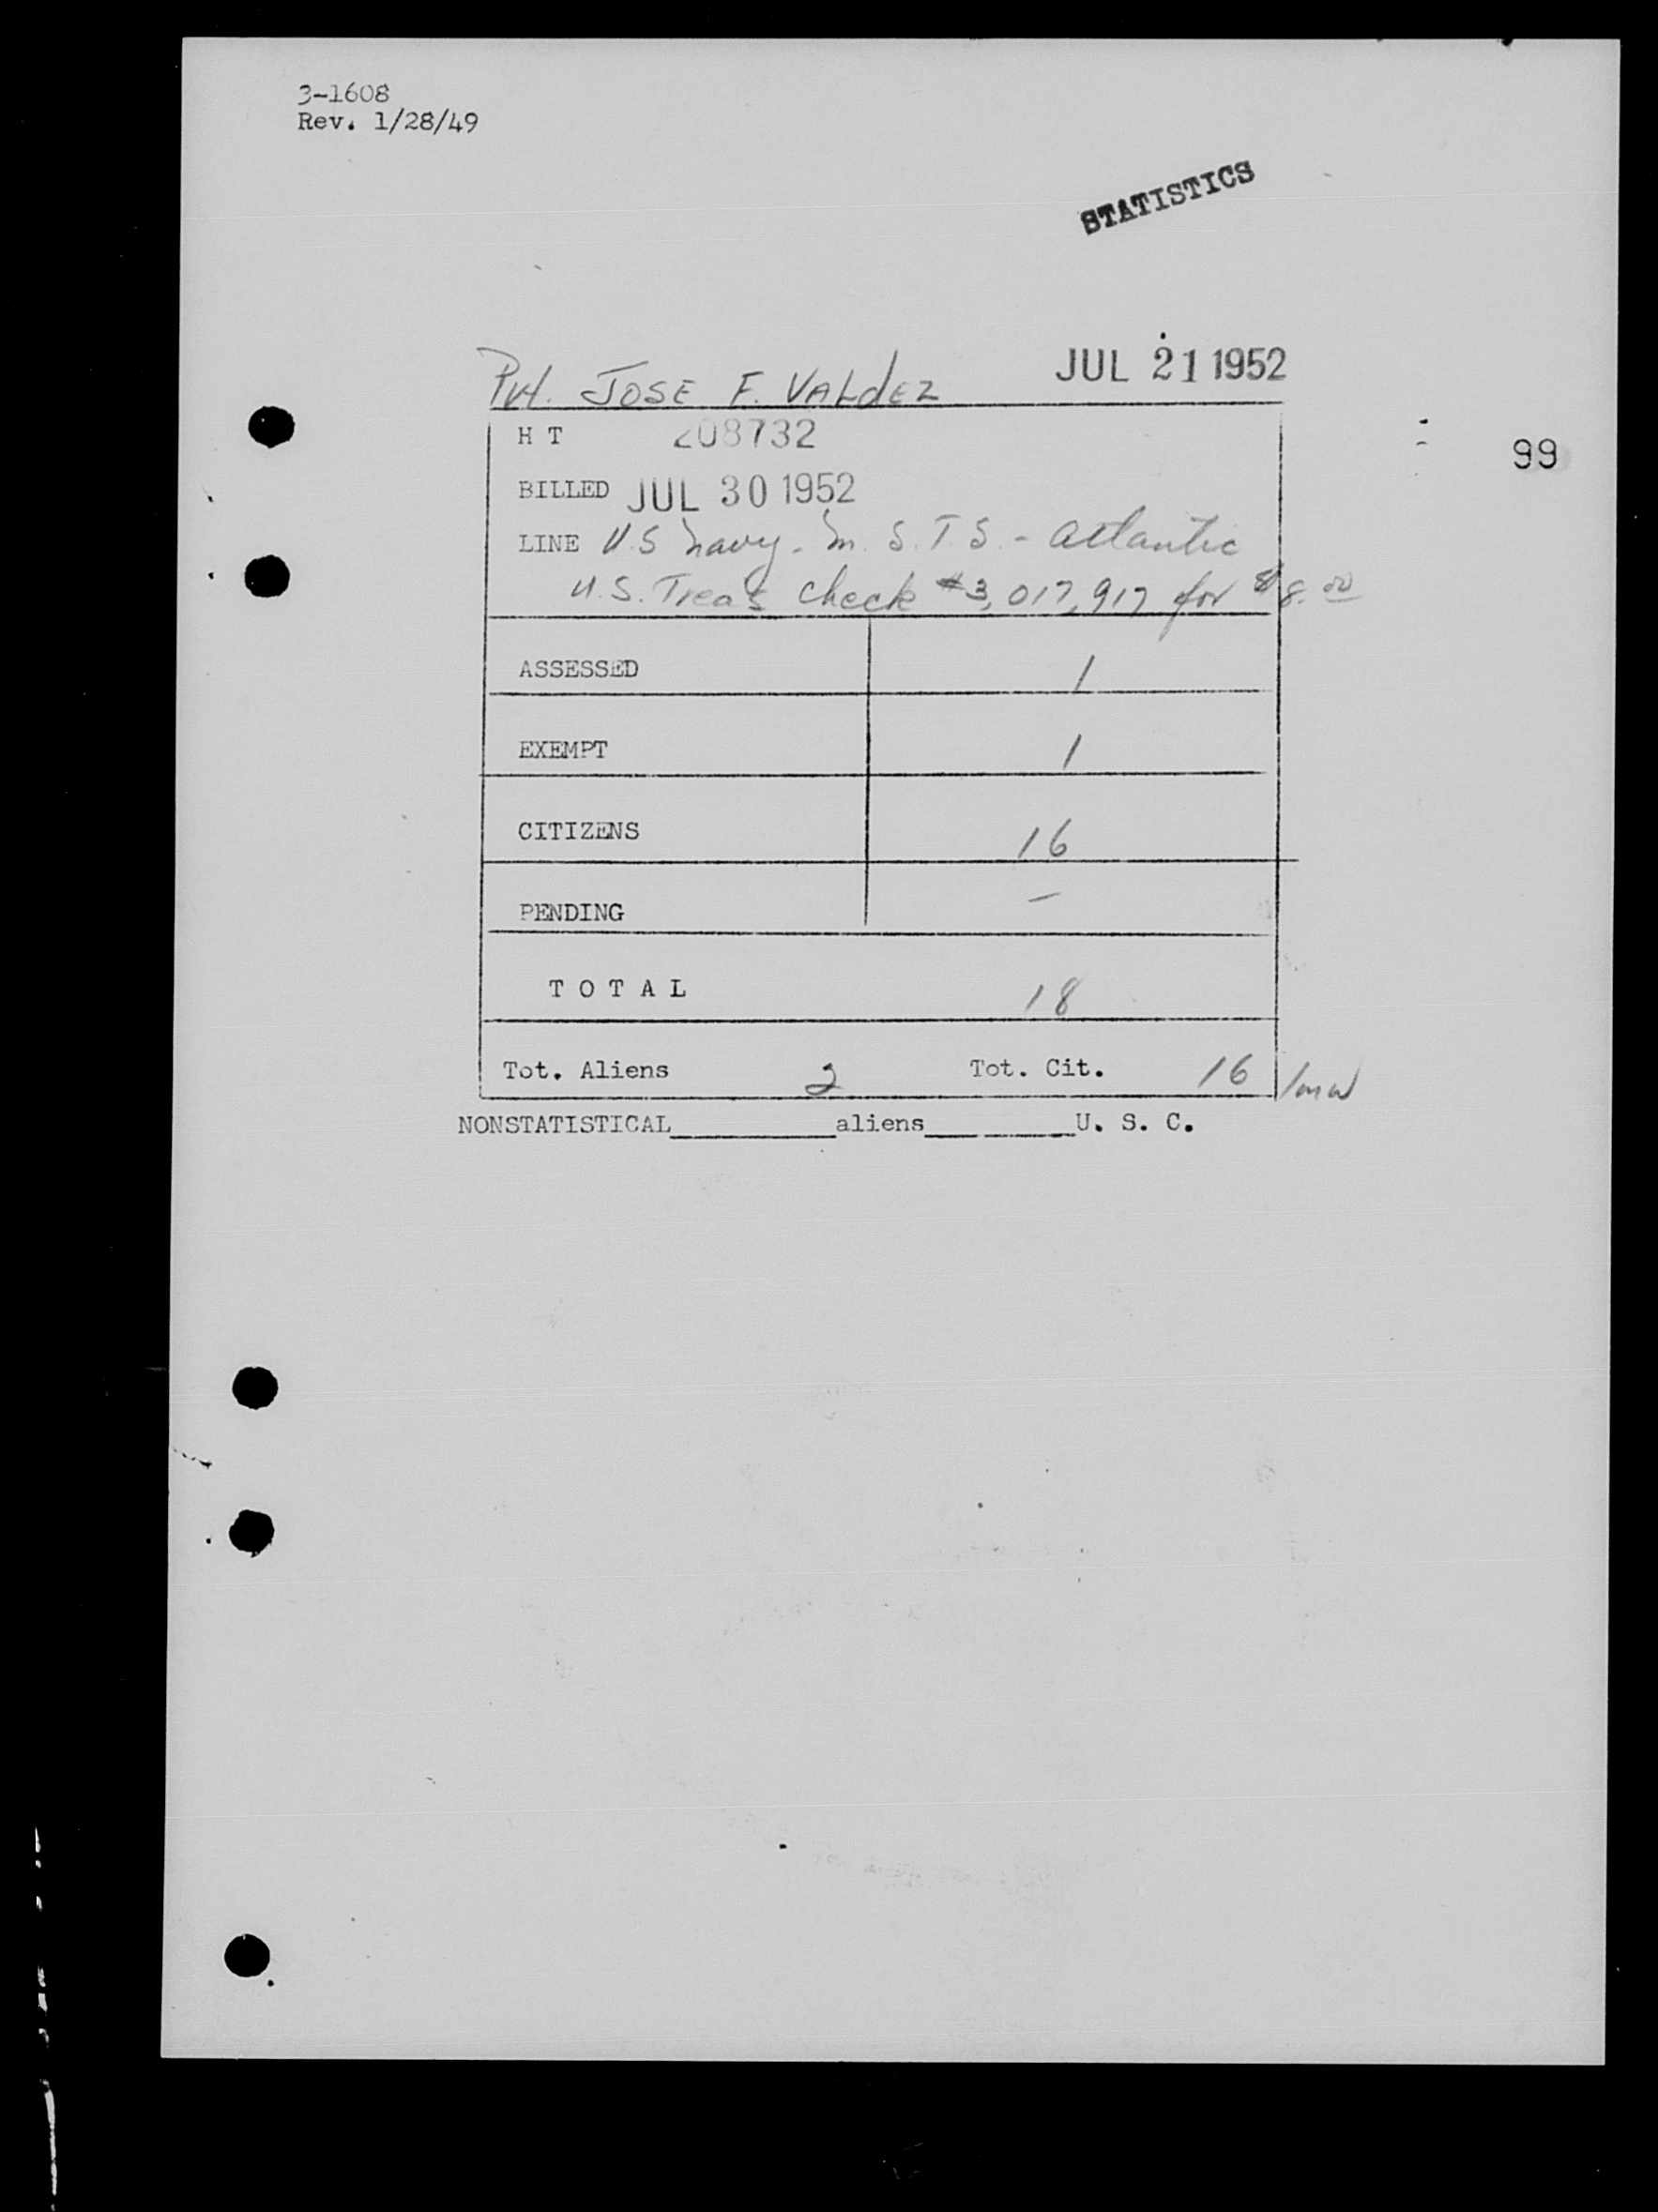 3-1608
Rev. 1/28/49
STATISTICS
Pvt. JOSE F. VALdEZ JUL 21 1952
H T 208732
99
BILLED JUL 30 1952
LINE U.S navy - M. S. T. S. - Atlantic
U.S. Treas check #3,017,917 for $8.00
ASSESSED 1
EXEMPT 1
CITIZENS 16
PENDING –
T O T A L 18
Tot. Aliens 2 Tot. Cit. 16
NONSTATISTICAL__________aliens__________U. S. C.